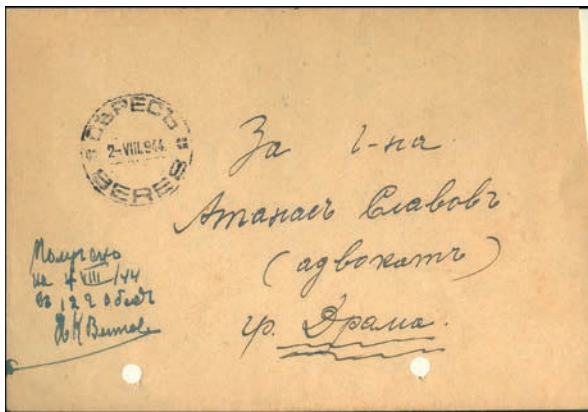 СѢРЕСЪ
2-VIII.944
SERES
За г-на
Атанасъ Славовъ
(адвокатъ)
гр. Драма.
Получено
на 4 VIII/44
въ 12 ч обѣдъ